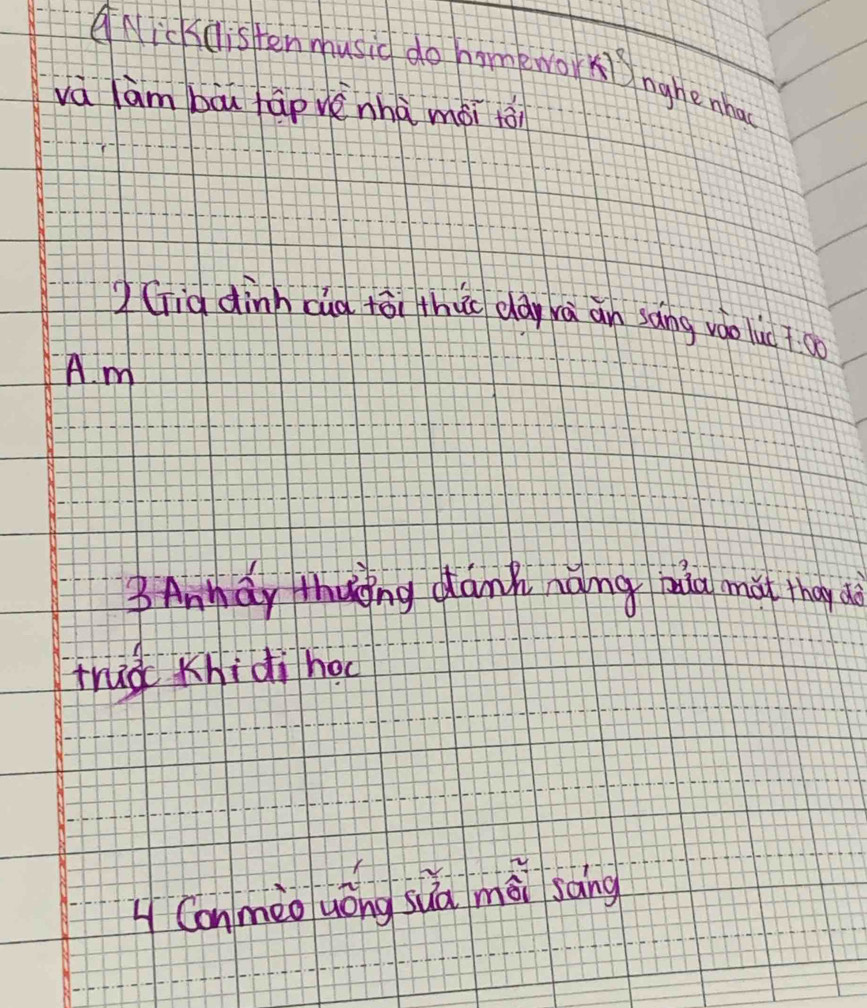 1 Nick (listen music do homework) S nghe nhac
và làm bài tâp vê nhà mỗi tối
2 Gia đình của tôi thức dậy và ăn sáng vào lúc 7.00
A.m
3 Anh ấy thường đánh răng rửa mặt thay đồ
trước khi đi học
4 Con mèo uống sữa mỗi sáng